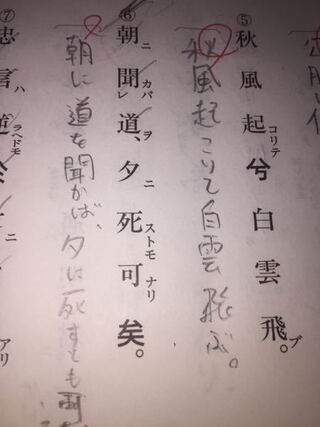 ⑤秋風起コリテ兮白雲飛ブ。
秋風起こりて白雲飛ぶ。
⑥朝ニ聞カバレ道ヲ、夕ニ死ストモ可ナリ矣。
朝に道を聞かば、夕に死すとも
⑦忠言ハ逆ラヘドモ